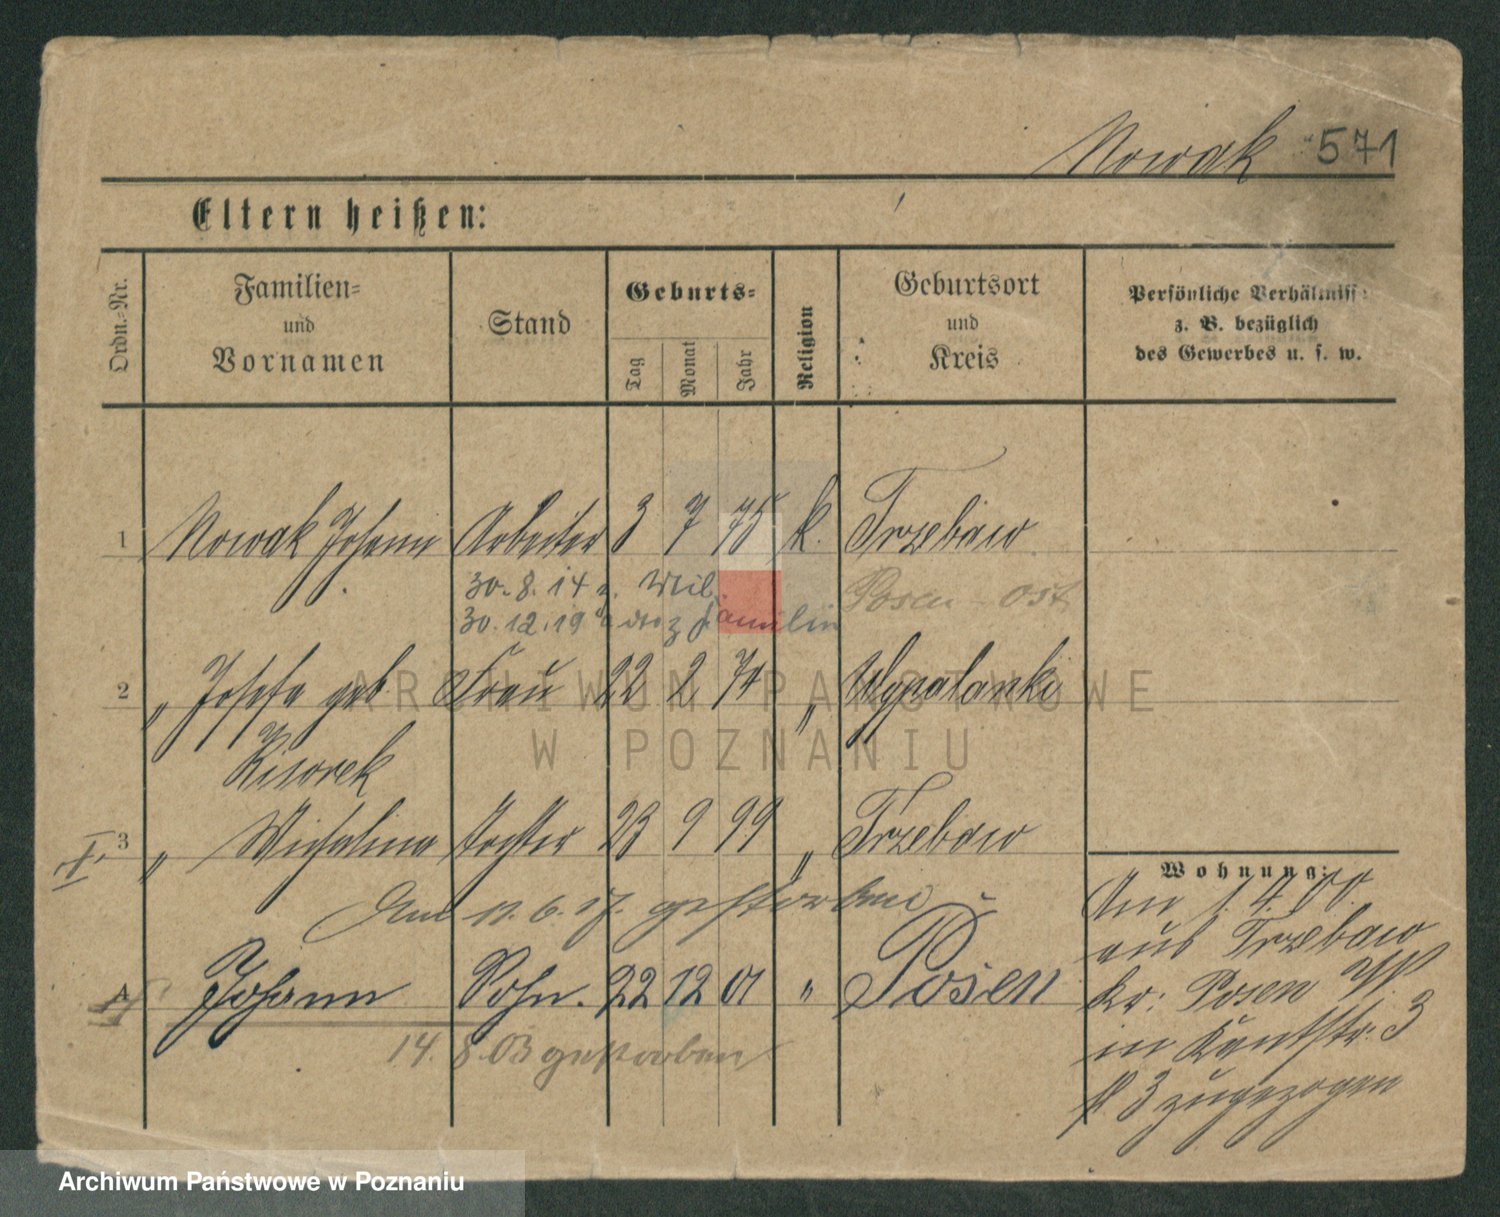 Nowak 571
Eltern heißen:
Ordn.-Nr.
Familien-
und
Vornamen
Stand
Geburts-
Tag
Monat
Jahr
Religion
Geburtsort
und
Kreis
Persönliche Verhältnisse
z. B. bezüglich
des Gewerbes u. s. w.
1 Nowak Johann Arbeiter 3 7 75 k. Trzebaw
30.8.14 z. Mil. Posen-Ost
30.12.19 Familie
2 " Josefa geb. Frau 22 2 74 " Wypalanki
3 " Michalina Tochter 23 9 99 " Trzebaw
Am 11.6.17. gestorben
4 Johann Sohn. 22 12 01 " Posen
14.8.03 gestorben
Wohnung:
Am 1.4.00.
aus Trzebaw
Kr: Posen W.
in Kantstr. 3
zugezogen
ARCHIWUM PAŃSTWOWE
W POZNANIU
Archiwum Państwowe w Poznaniu